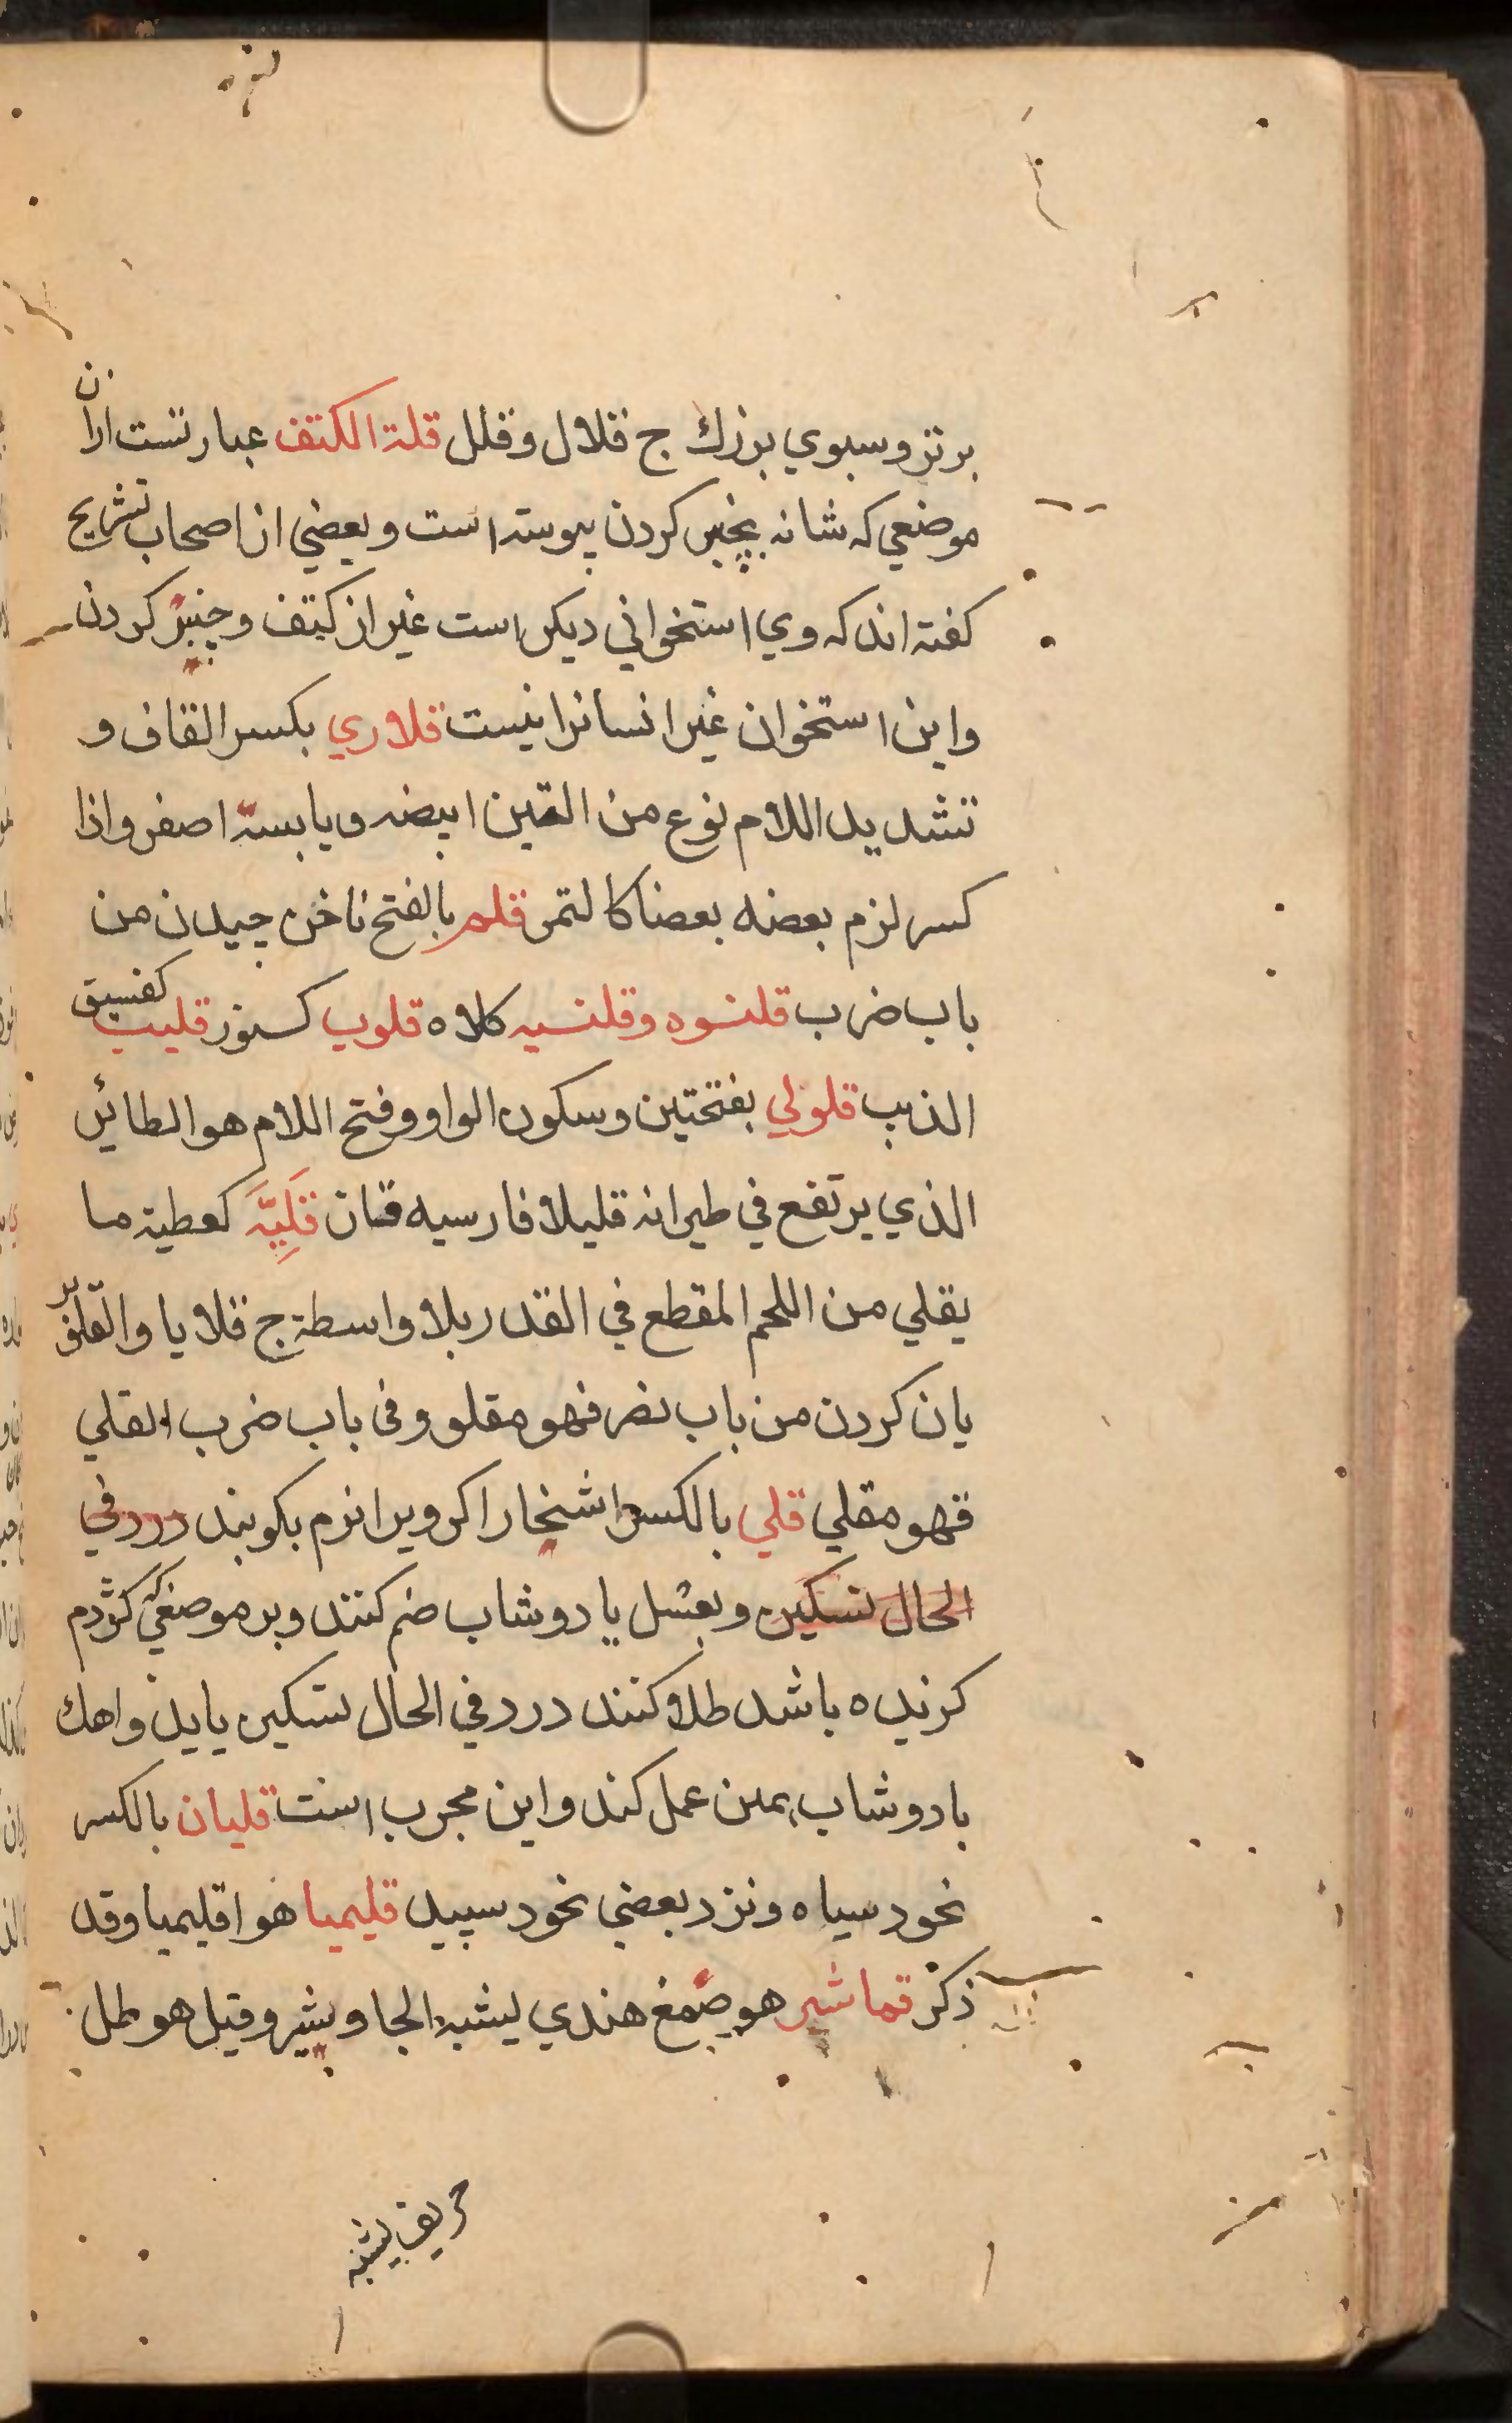 برتر و سبوي بزرك ج قلال و قلل قلة الكتف عبارتست ازان
موضعي كه شانه بچنبر كردن پيوسته است و بعضي از اصحاب تشريح
كفته اند كه وي استخواني ديكر است غير از كتف و چنبر كردن
و اين استخوان غير انسانرا نيست قلاري بكسر القاف و
تشديد اللام نوع من التين ابيضه و يابسه اصفر و اذا
كسر لزم بعضه بعضا كالتمر قلم بالفتح ناخن چيدن من
باب ضرب قلنسوه و قلنسيه كلاه قلوب كسنور قليب كفسيق
الذيب قلولي بفتحتين و سكون الواو و فتح اللام هو الطائر
الذي يرتفع في طيرانه قليلا فارسيه قتان قَلِيَّه كعطية ما
يقلي من اللحم المقطع في القدر بلا واسطة ج قلايا و القلو بر
يان كردن من باب نصر فهو مقلو و في باب ضرب القلي
فهو مقلي قلي بالكسر اشخار اكر ويرا نرم بكوبند درد في
الحال تسكين و بعسل يا دوشاب ضم كنند و بر موضعي كه كژدم
كزيده باشد طلا كنند درد في الحال تسكين يابد و اهك
با دوشاب همين عمل كند و اين مجرب است قليان بالكسر
نخود سياه و نزد بعضي نخود سپيد قليميا هو اقليميا و قد
ذكر قماشير هو صمغ هندي يشبه الجاوشير و قيل هو طل
حريف يشبه